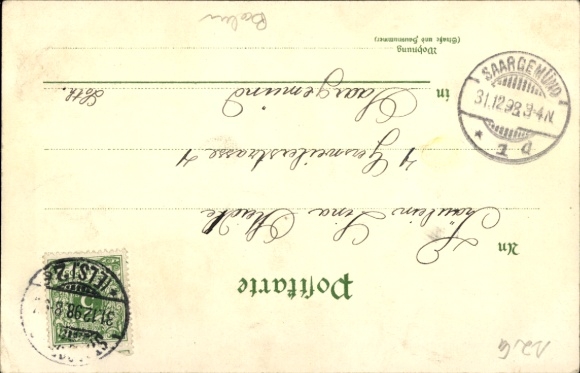 Postkarte
An
Fräulein Lina
4 Gersweilerstrasse 4
in
Saargemünd
Loth.
Wohnung
(Straße und Hausnummer)
SAARGEMÜND
31.12.98. 3-4N.
* 1 d
(ELS) 2
31.12.98. 8-
5
Berlin